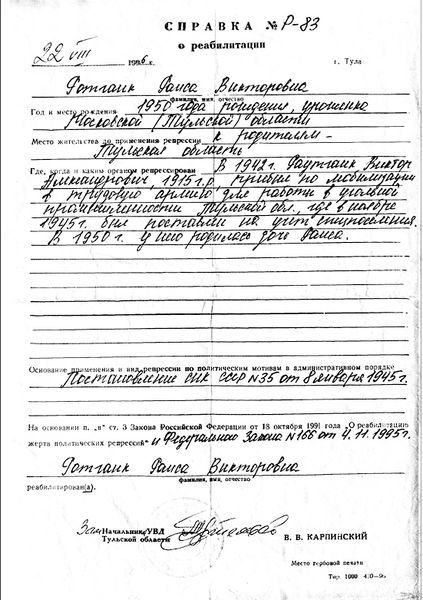 СПРАВКА № Р-83
о реабилитации
22 VIII 1996 г. г. Тула
Готганк Раиса Викторовна
фамилия, имя, отчество
Год и место рождения 1950 года рождения, уроженка
Московской (Тульской) области
Место жительства до применения репрессии к родителям —
Тульская область
Где, когда и каким органом репрессирован В 1942 г. Гаутганк Виктор
Александрович, 1915 г.р. призван по мобилизации
в трудовую армию для работы в угольной
промышленности Тульской обл., где в ноябре
1945 г. был поставлен на учет спецпоселения.
В 1950 г. у него родилась дочь Раиса.
Основание применения и вид репрессии по политическим мотивам в административном порядке
Постановление СНК СССР № 35 от 8 января 1945 г.
На основании п. „в" ст. 3 Закона Российской Федерации от 18 октября 1991 года „О реабилитации
жертв политических репрессий" и Федерального Закона № 166 от 4.11.1995 г.
Готганк Раиса Викторовна
фамилия, имя, отчество
реабилитирован(а).
Зам. Начальник УВД
Тульской области
В. В. КАРПИНСКИЙ
Место гербовой печати
Тир. 1000